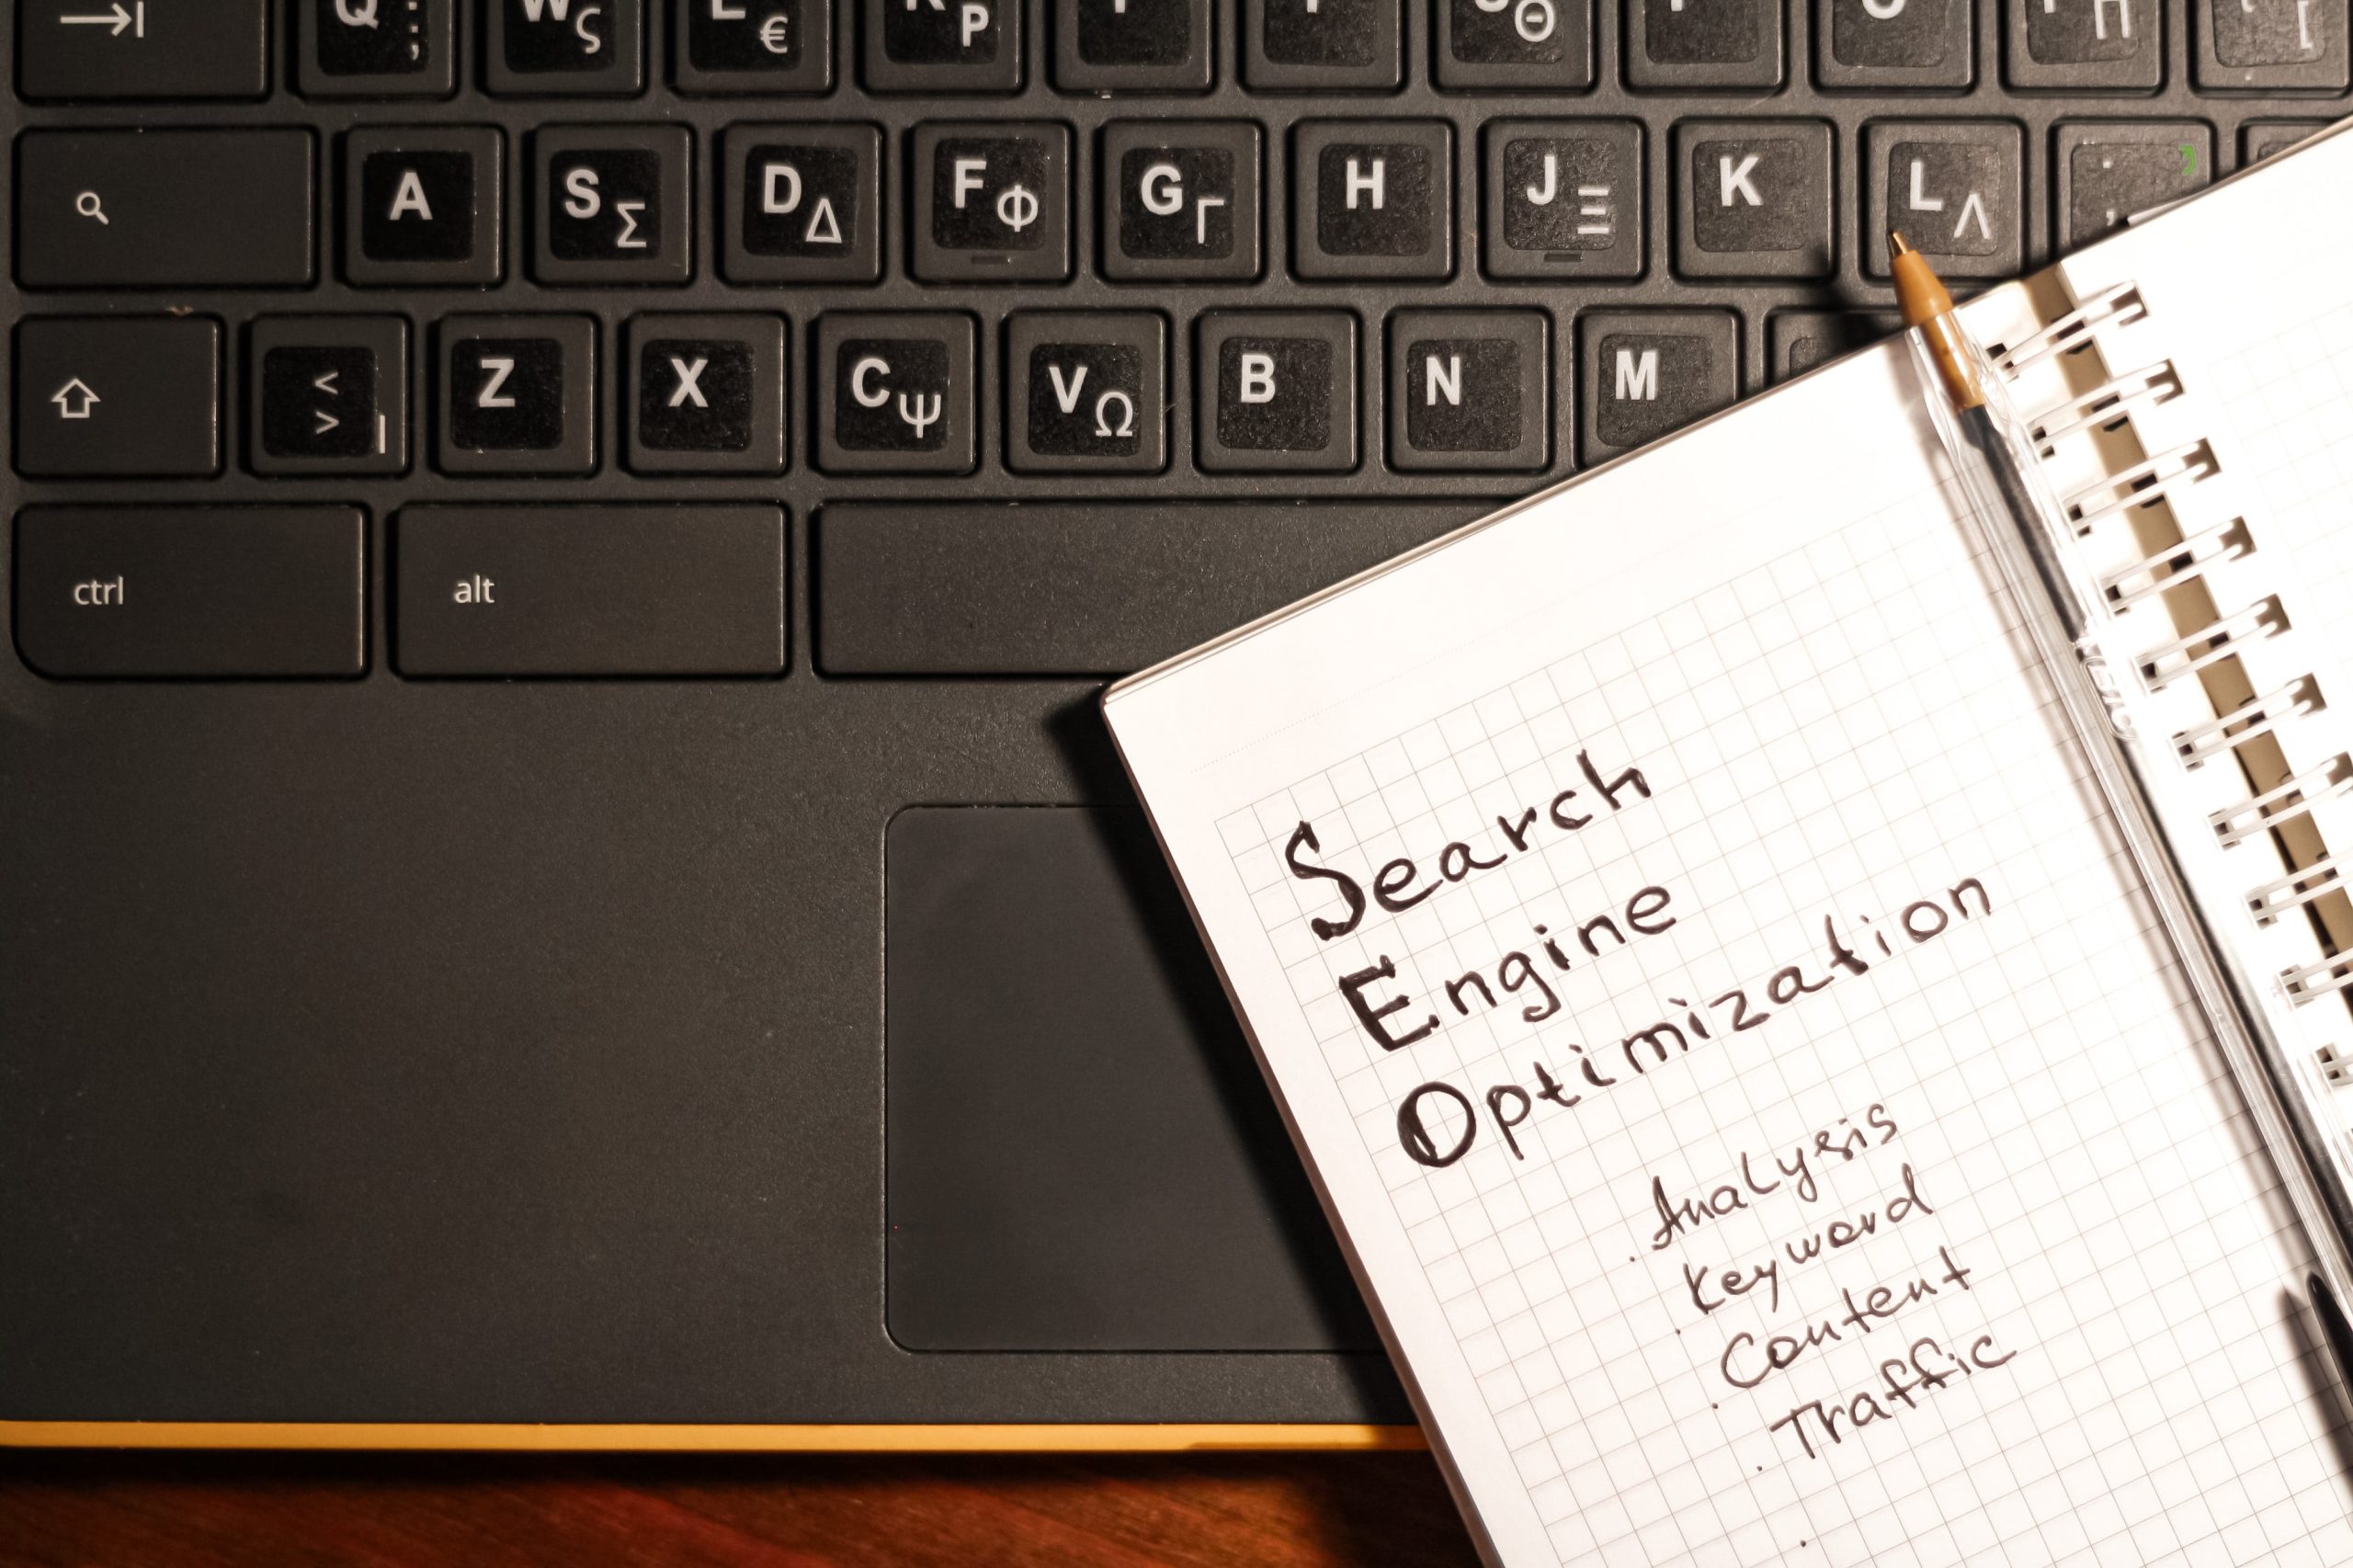 Q ; :
W ς
E €
R P
Θ
Π
A
S Σ
D Δ
F Φ
G Γ
H
J Ξ
K
L Λ
< >
Z
X
C Ψ
V Ω
B
N
M
ctrl
alt
Search
Engine
Optimization
. Analysis
. Keyword
. Content
. Traffic
.